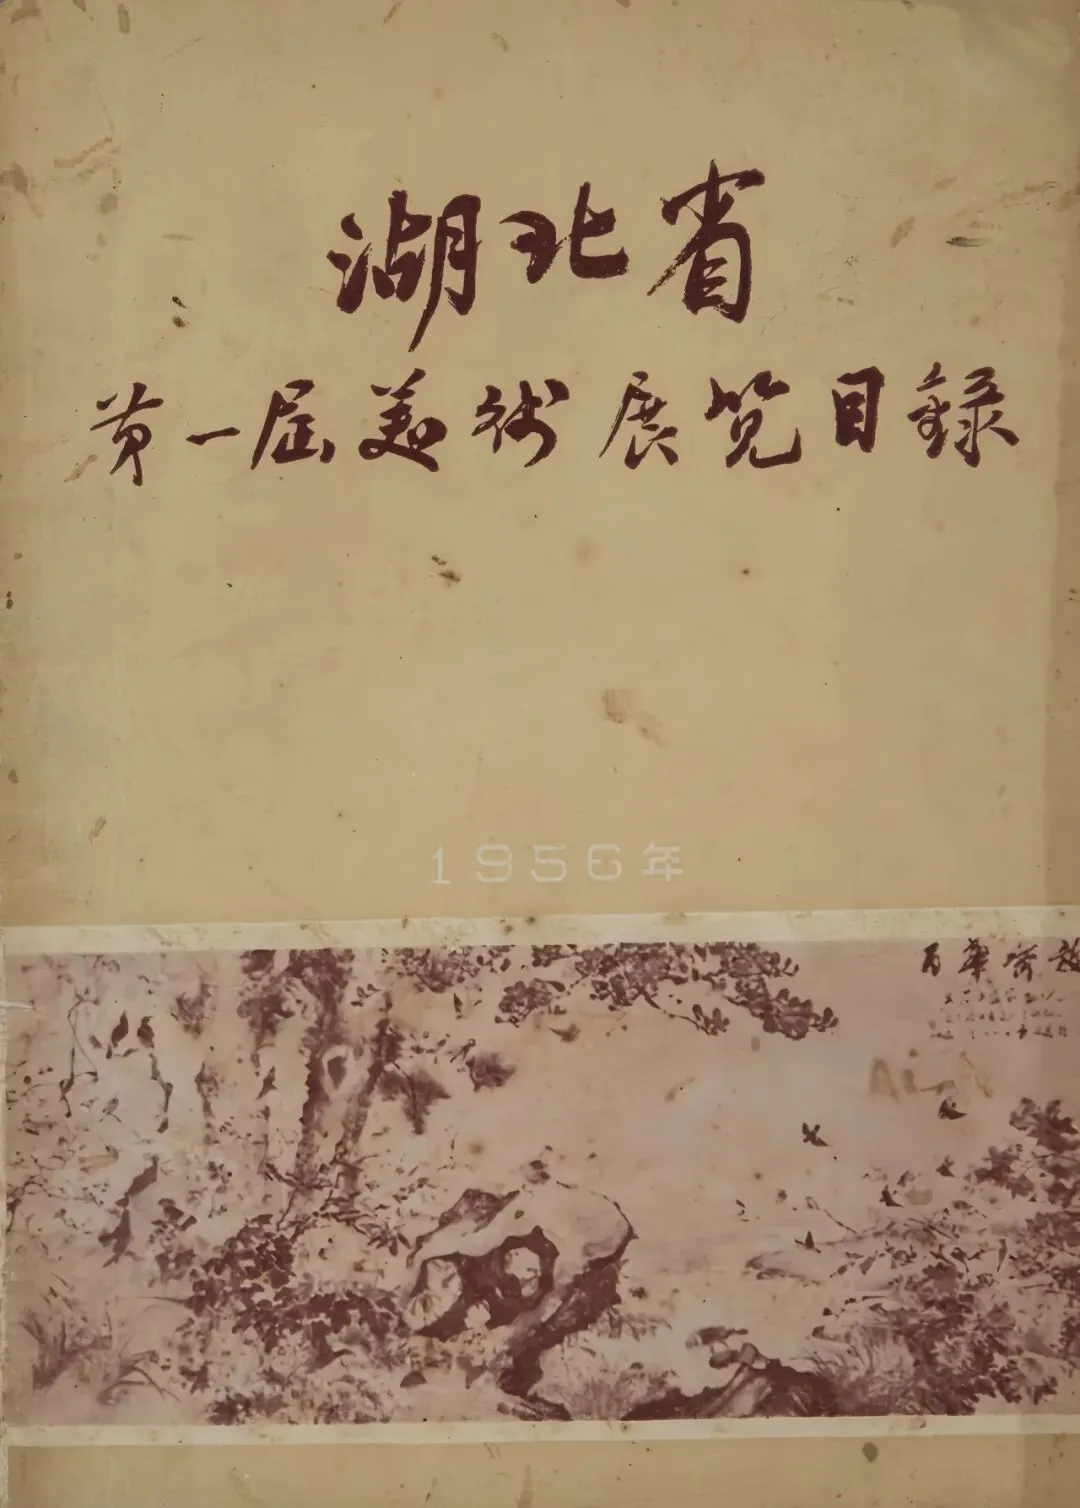 湖北省
第一届美術展览目録
1956年
百華齊放